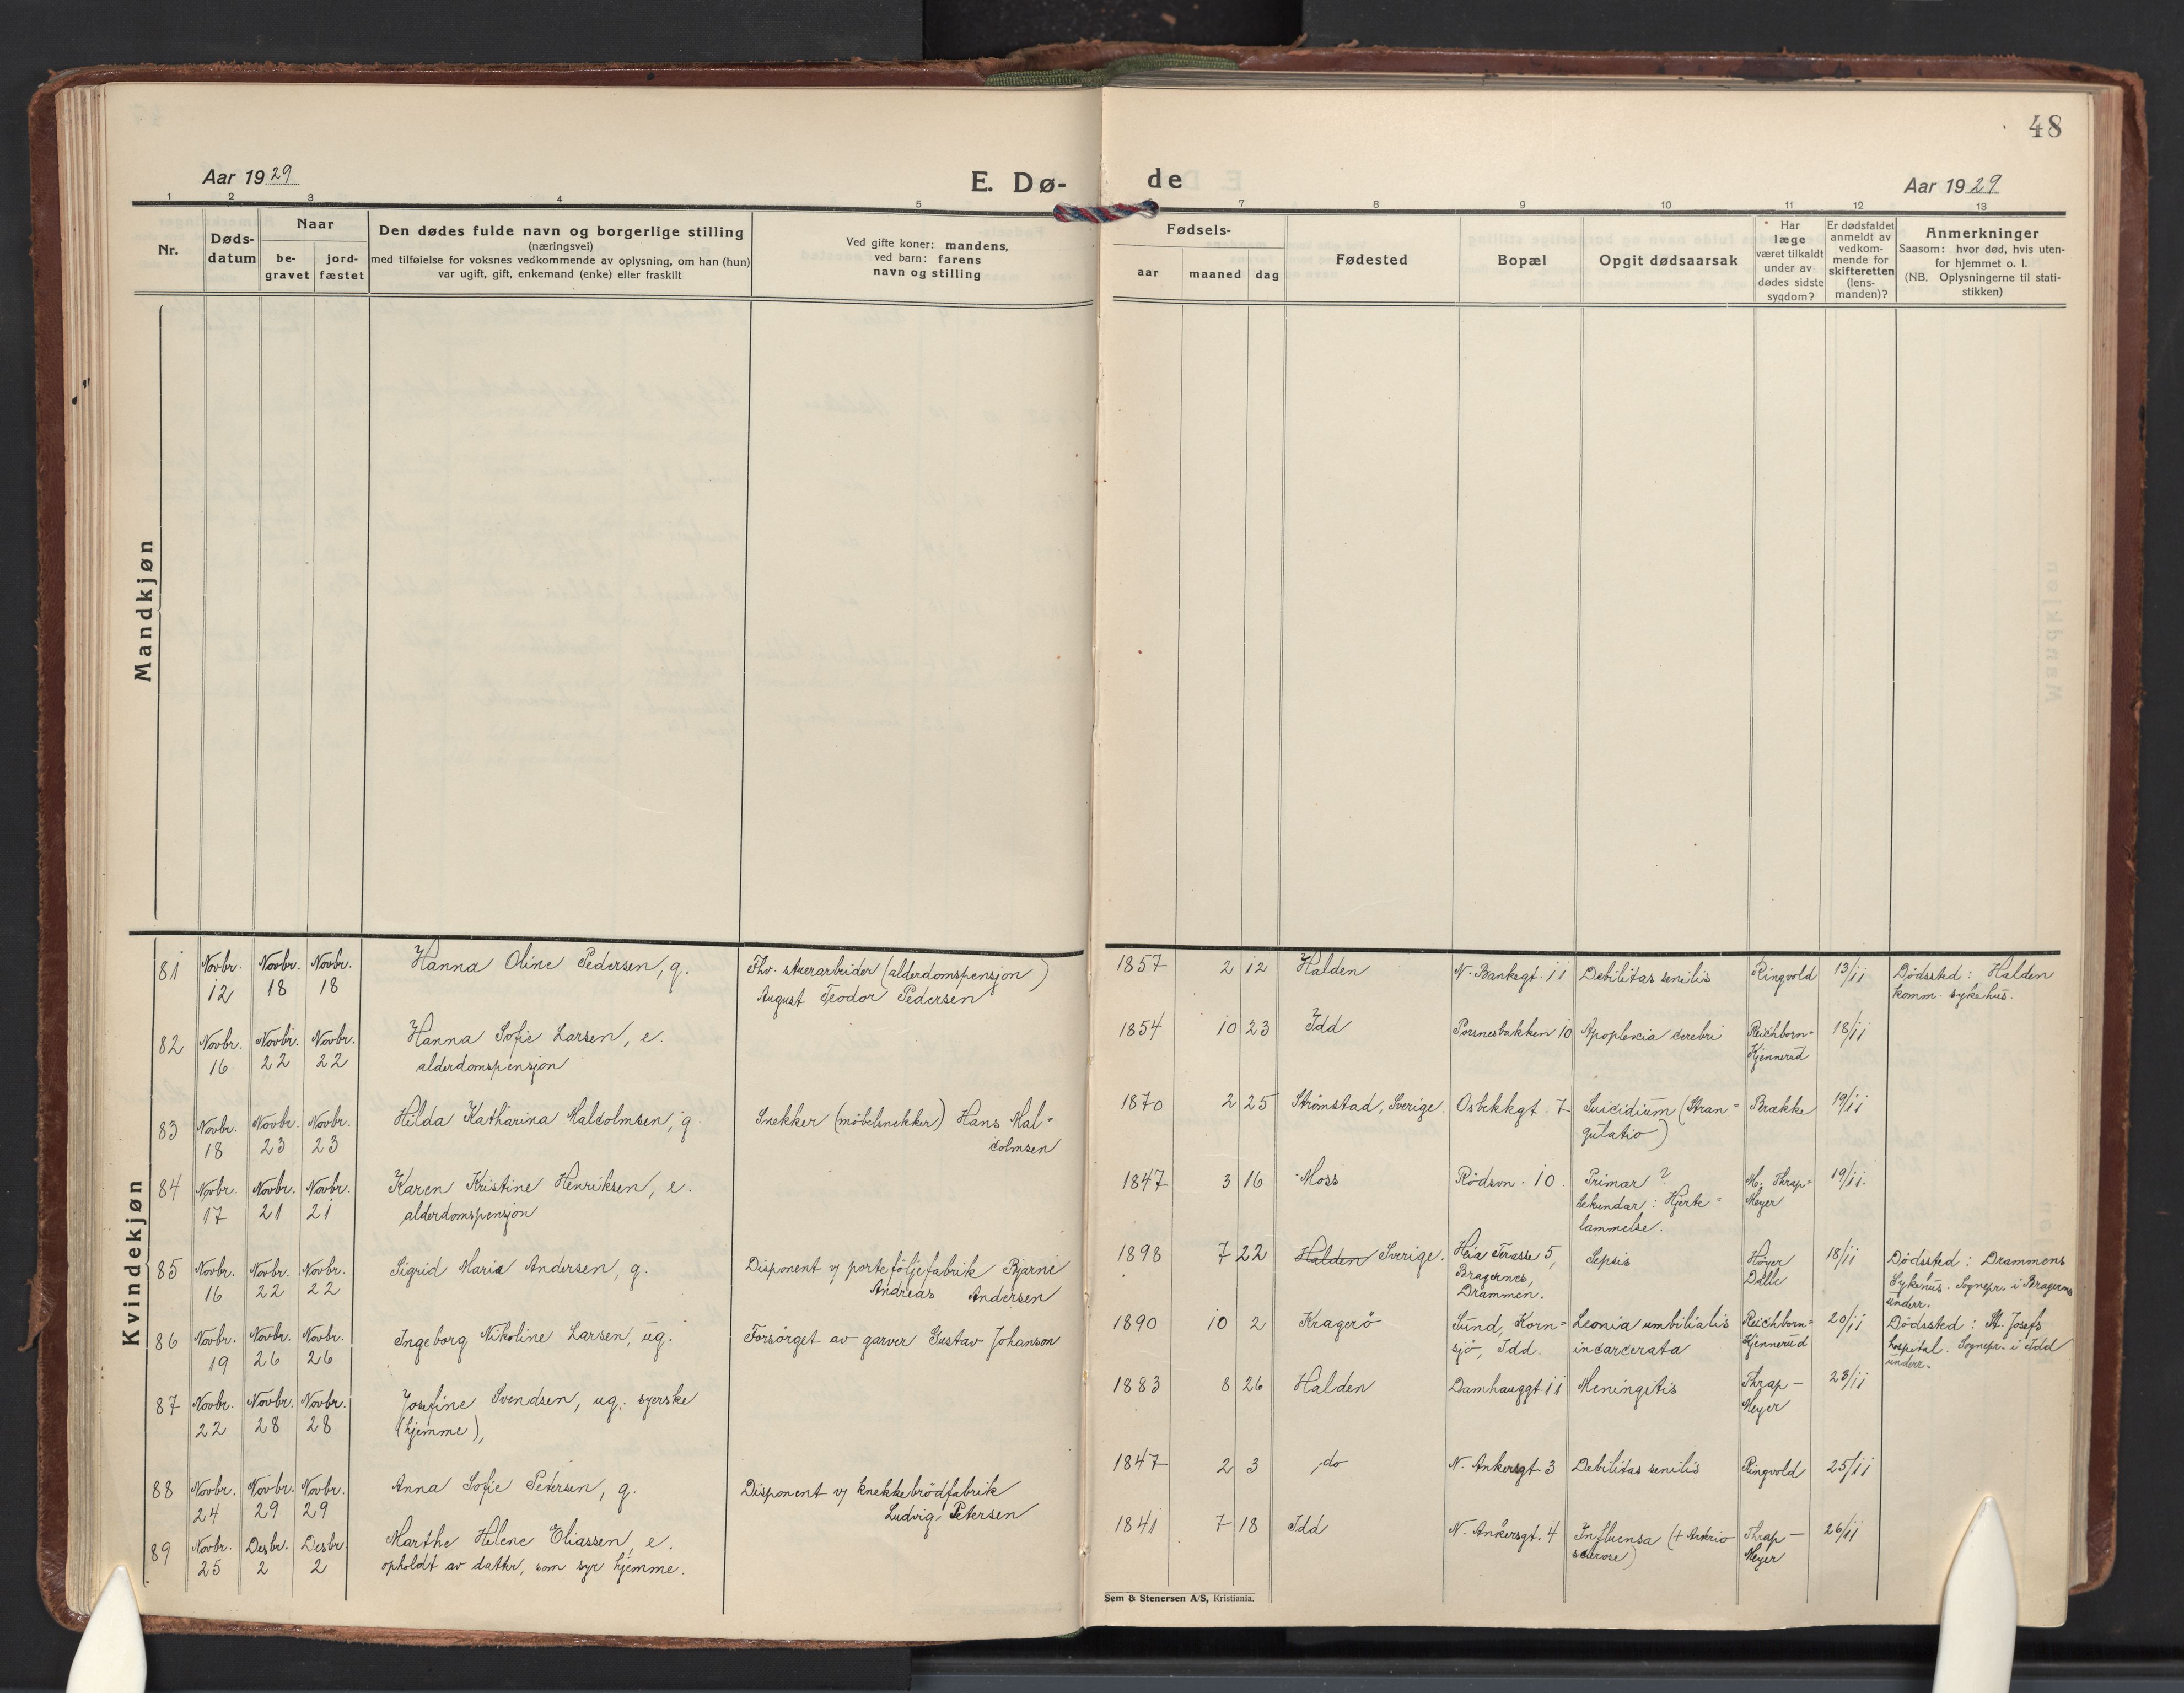 48
Aar 1929
E. Dø-
de
Aar 1929
1 2 3 4 5
7 8 9 10 11 12 13
Nr.
Døds-
datum
Naar
be-
gravet
jord-
fæstet
Den dødes fulde navn og borgerlige stilling
(næringsvei)
med tilføielse for voksnes vedkommende av oplysning, om han (hun)
var ugift, gift, enkemand (enke) eller fraskilt
Ved gifte koner: mandens,
ved barn: farens
navn og stilling
Fødsels-
aar
maaned
dag
Fødested
Bopæl
Opgit dødsaarsak
Har
læge
været tilkaldt
under av-
dødes sidste
sygdom?
Er dødsfaldet
anmeldt av
vedkom-
mende for
skifteretten
(lens-
manden)?
Anmerkninger
Saasom: hvor død, hvis uten-
for hjemmet o. l.
(NB. Oplysningerne til stati-
stikken)
Mandkjøn
Kvindekjøn
81 Novbr. Novbr. Novbr. Hanna Oline Pedersen, g. Fhv. stuerarbeider (alderdomspensjon) 1857 2 12 Halden N. Bankegt. 11 Debilitas senilis Ringvold 13/11 Dødssted: Halden
12 18 18 August Teodor Pedersen komm. sykehus.
82 Novbr. Novbr. Novbr. Hanna Sofie Larsen, e. 1854 10 23 Idd Porsnesbakken 10 Apoplexia cerebri Reichborn= 18/11
16 22 22 alderdomspensjon Kjennerud
83 Novbr. Novbr. Novbr. Hilda Katharina Malcolmsen, g. Snekker (møbelsnekker) Hans Mal= 1870 2 25 Strömstad, Sverige. Osbekkgt. 7 Suicidium (Stran= Brække 19/11
18 23 23 colmsen gulatio)
84 Novbr. Novbr. Novbr. Karen Kristine Henriksen, e. 1847 3 16 Moss Rödsvn. 10. Primar? M. Thrap= 19/11.
17 21 21 alderdomspensjon Sekundar: Hjerte= Meyer
lammelse.
85 Novbr. Novbr. Novbr. Sigrid Maria Andersen, g. Disponent v/ porteföljefabrik Bjarne 1898 7 22 Halden Sverige. Heia Terasse 5, Sepsis Höyer 18/11 Dödssted: Drammens
16 22 22 Andreas Andersen Bragernes, Dalle Sykehus. Sognepr. i Bragernes
Drammen. underr.
86 Novbr. Novbr. Novbr. Ingeborg Nikoline Larsen, ug. Forsörget av garver Gustav Johanson 1890 10 2 Kragerö Sund, Korn= Leonia umbilialis Reichborn= 20/11 Dödssted: St. Josefs
19 26 26 sjö, Idd. incarcerata Kjennerud hospital. Sognepr. i Idd
underr.
87 Novbr. Novbr. Novbr. Josefine Svendsen, ug. syerske 1883 8 26 Halden Damhauggt. 11 Meningitis Thrap- 23/11
22 28 28 (hjemme), Meyer
88 Novbr. Novbr. Novbr. Anna Sofie Petersen, g. Disponent v/ knekkebrödfabrik 1847 2 3 do N. Ankersgt. 3 Debilitas senilis Ringvold 25/11
24 29 29 Ludvig Petersen
89 Novbr. Desbr. Desbr. Marthe Helene Eliassen, e. 1841 7 18 Idd N. Ankersgt. 4 Influensa (+ Arterio Thrap- 26/11
25 2 2 opholdt av datter, som syr hjemme. sclerose) Meyer
Sem & Stenersen A/S, Kristiania.